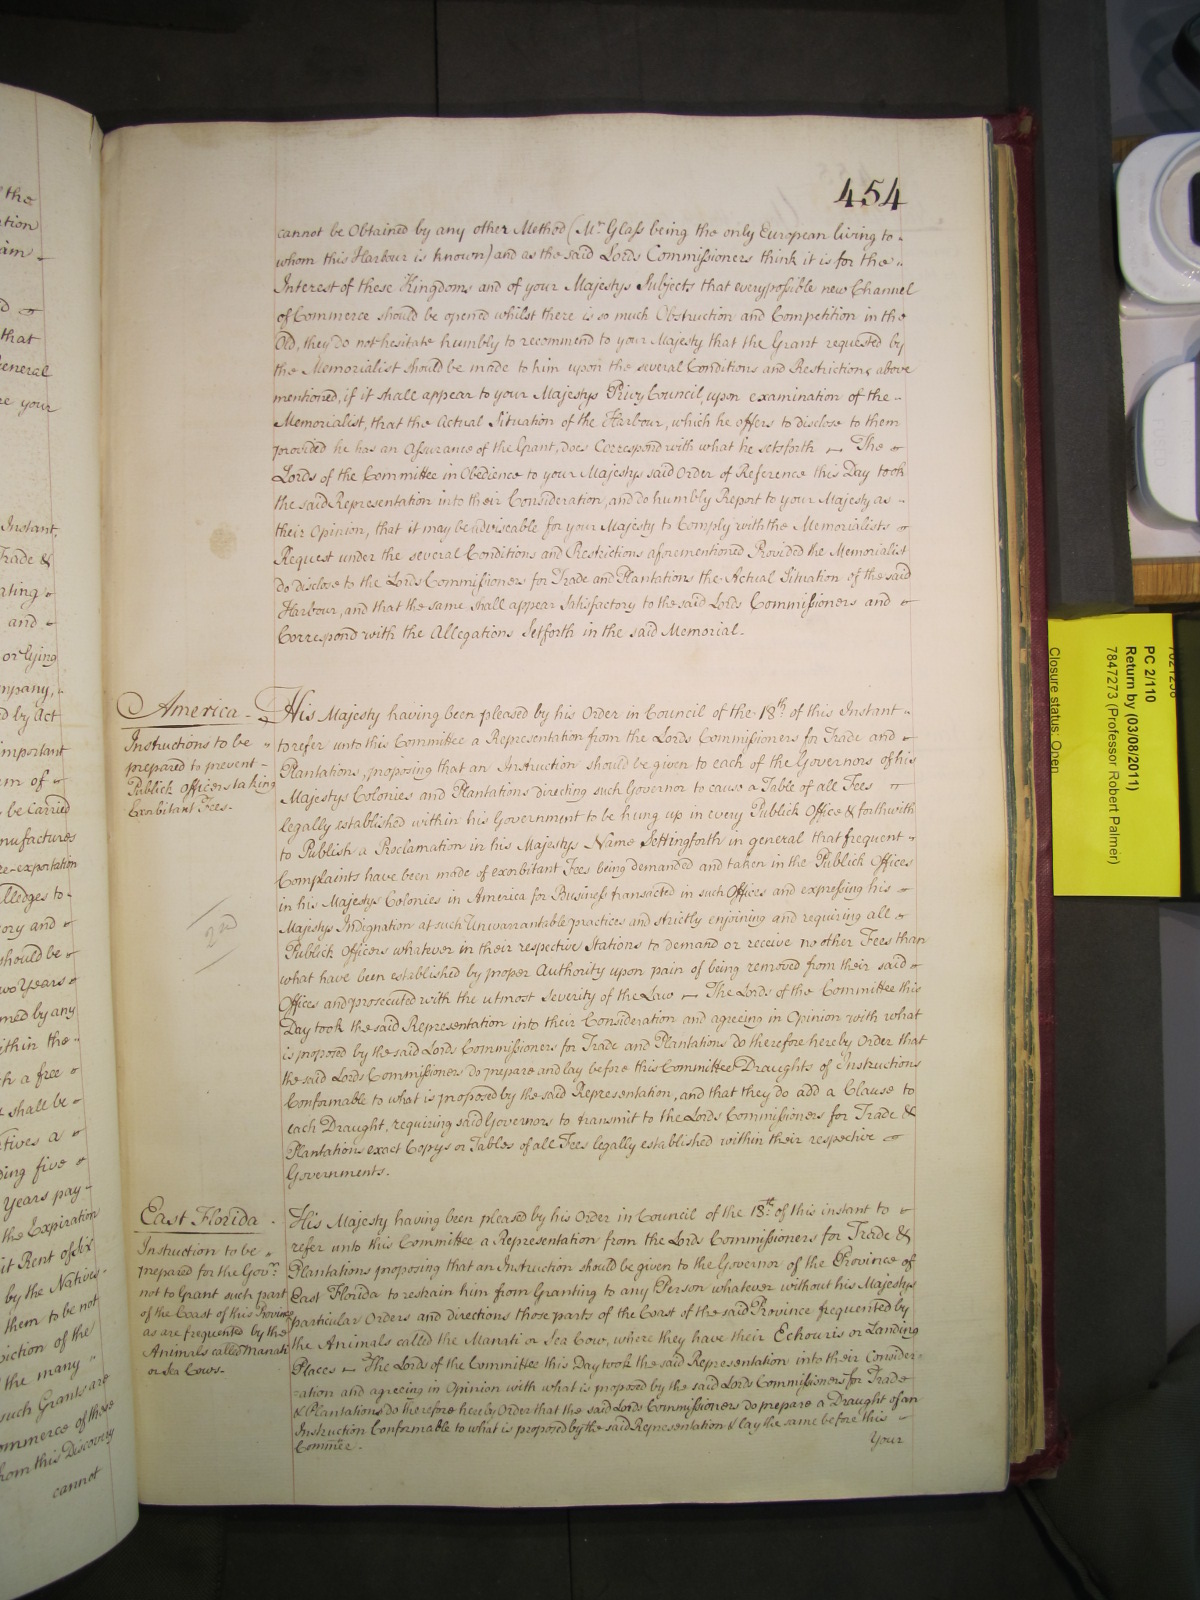 454
cannot be Obtained by any other Method (Mr. Glass being the only European living to
whom this Harbour is known) and as the said Lords Commissioners think it is for the
Interest of these Kingdoms and of your Majestys Subjects that every possible new Channel
of Commerce should be opened whilst there is so much Obstruction and Competition in the
Old, they do not hesitate humbly to recommend to your Majesty that the Grant requested by
the Memorialist should be made to him upon the several Conditions and Restrictions above
mentioned, if it shall appear to your Majestys Privy Council, upon examination of the
Memorialist, that the Actual Situation of the Harbour, which he offers to disclose to them
provided he has an Assurance of the Grant, does Correspond with what he setsforth — The
Lords of the Committee in Obedience to your Majestys said Order of Reference this Day took
the said Representation into their Consideration, and do humbly Report to your Majesty as
their Opinion, that it may be adviseable for your Majesty to Comply with the Memorialists
Request under the several Conditions and Restrictions aforementioned Provided the Memorialist
do disclose to the Lords Commissioners for Trade and Plantations the Actual Situation of the said
Harbour, and that the same shall appear Satisfactory to the said Lords Commissioners and
Correspond with the Allegations Setforth in the said Memorial.
America.
Instructions to be
prepared to prevent
Publick Officers taking
Exorbitant Fees.
2nd
His Majesty having been pleased by his Order in Council of the 18th. of this Instant
to refer unto this Committee a Representation from the Lords Commissioners for Trade and
Plantations, proposing that an Instruction should be given to each of the Governors of his
Majestys Colonies and Plantations directing such Governor to cause a Table of all Fees
legally established within his Government to be hung up in every Publick Office & forthwith
to Publish a Proclamation in his Majestys Name Settingforth in general that frequent
Complaints have been made of exorbitant Fees being demanded and taken in the Publick Offices
in his Majestys Colonies in America for Business transacted in such Offices and expressing his
Majestys Indignation at such Unwarrantable practices and strictly enjoining and requiring all
Publick Officers whatever in their respective Stations to demand or receive no other Fees than
what have been established by proper Authority upon pain of being removed from their said
Offices and prosecuted with the utmost Severity of the Law — The Lords of the Committee this
Day took the said Representation into their Consideration and agreeing in Opinion with what
is proposed by the said Lords Commissioners for Trade and Plantations do therefore hereby Order that
the said Lords Commissioners do prepare and lay before this Committee Draughts of Instructions
Conformable to what is proposed by the said Representation, and that they do add a Clause to
each Draught, requiring said Governors to transmit to the Lords Commissioners for Trade &
Plantations exact Copys or Tables of all Fees legally established within their respective
Governments.
East Florida
Instruction to be
prepared for the Govr.
not to Grant such part
of the Coast of this Province
as are frequented by the
Animals called Manati
or Sea Cows.
His Majesty having been pleased by his Order in Council of the 18th. of this instant to
refer unto this Committee a Representation from the Lords Commissioners for Trade &
Plantations proposing that an Instruction should be given to the Governor of the Province of
East Florida to restrain him from Granting to any Person whatever without his Majestys
particular Orders and directions those parts of the Coast of the said Province frequented by
the Animals called the Manati or Sea Cow, where they have their Echouris or Landing
Places — The Lords of the Committee this Day took the said Representation into their Consider-
ration and agreeing in Opinion with what is proposed by the said Lords Commissioners for Trade
& Plantations do therefore hereby Order that the said Lords Commissioners do prepare a Draught of an
Instruction Conformable to what is proposed by the said Representation & lay the same before this
Committee.
Your
the
that
general
your
Instant
Trade &
and
or lying
by Act
important
be carried
re-exportation
should be
two Years
med by any
within the
a free
shall be
five
Years pay-
the Expiration
Rent of Six
by the Natives
them to be not
of the
the many
such Grants are
from this Discovery
cannot
PC 2/110
Return by (03/08/2011)
7847273 (Professor Robert Palmer)
Closure status: Open